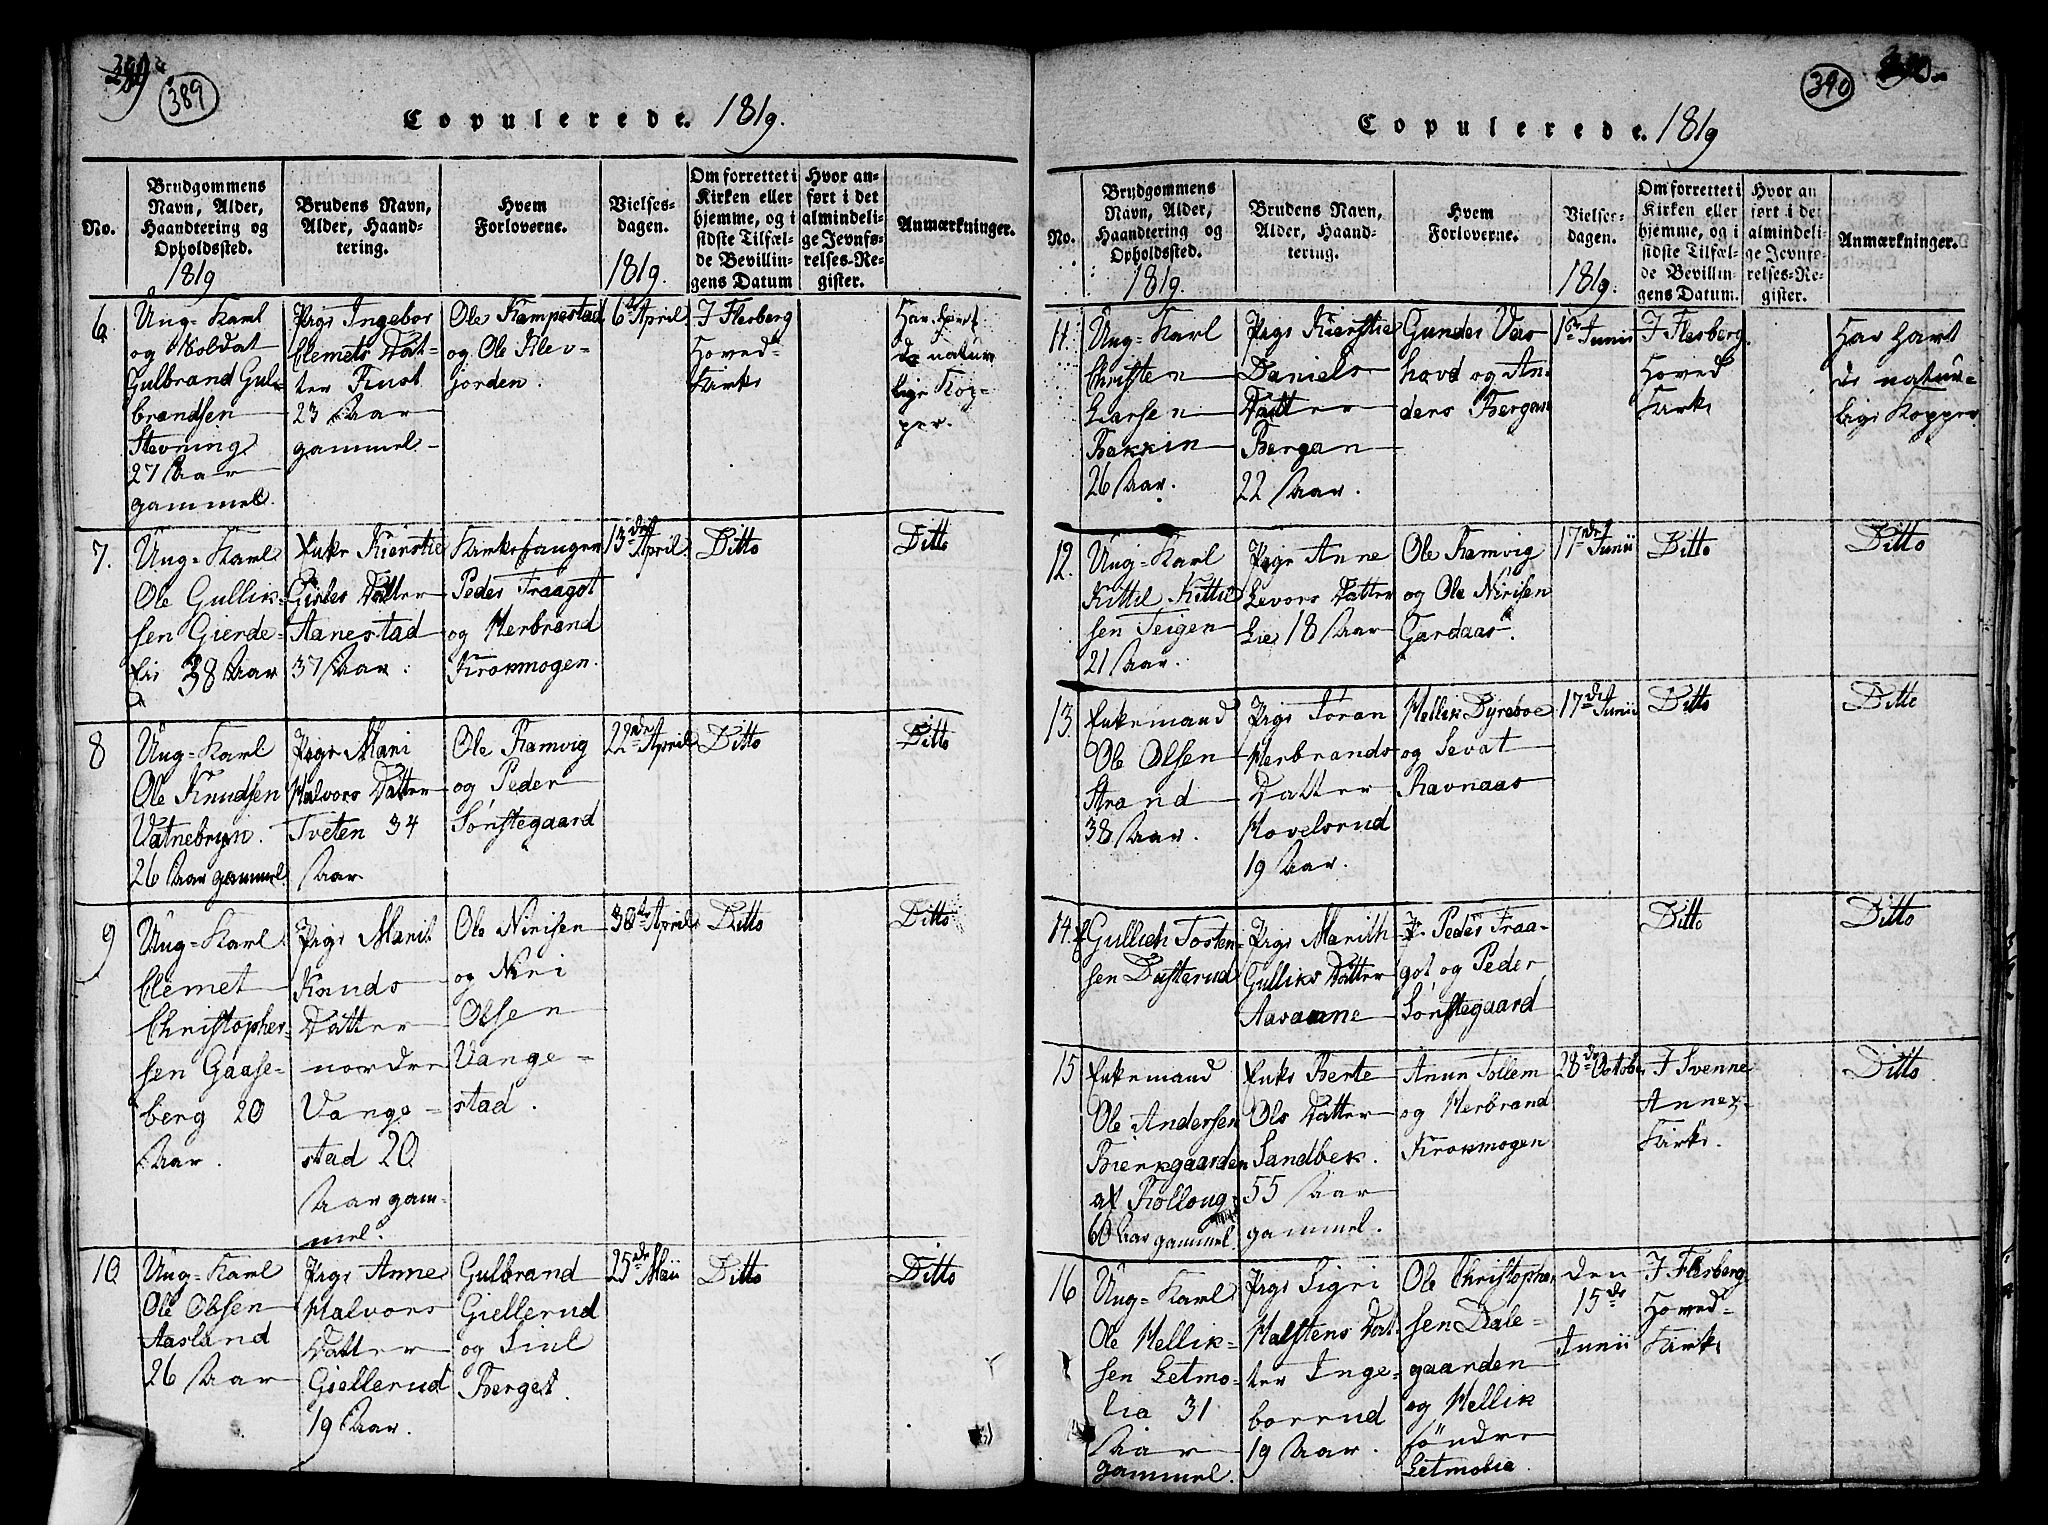 389
Copulerede. 1819.
No.
Brudgommens
Navn, Alder,
Haandtering og
Opholdssted.
1819
Brudens Navn,
Alder, Haand-
tering.
Hvem
Forloverne.
Vielses-
dagen.
1819.
Om forrettet i
Kirken eller
hjemme, og i
sidste Tilfæl-
de Bevillin-
gens Datum
Hvor an-
ført i det
almindeli-
ge Jevnfø-
relses-Re-
gister.
Anmærkninger.
6
Ung-Karl
og Soldat
Gulbrand Gul-
brandsen
Stevning
27 Aar
gammel.
Pige Ingebor
Clemets Dat-
ter Fust
23 Aar
gammel
Ole Kampestad
og Ole Klev-
jorden.
6te April
I Flesberg
Hoved-
Kirke
Har havt
de natur
lige Kop-
per.
7.
Ung-Karl
Ole Gullik-
sen Gierde-
38 Aar
Enke Kierstie
Datter
Aanestad
37 Aar.
Kirkesangen
Peder Traagot
og Herbrand
Krokmogen.
13de April
Ditto
Ditto
8
Ung-Karl
Ole Knudsen
Vatnebryn.
26 Aar gammel
Pige Mari
Halvors Datter
Tveten 34
Aar
Ole Ramvig
og Peder
Sønstegaard
22de April
Ditto
Ditto
9
Ung-Karl
Clemet
Christopher-
sen Gaase-
berg 20
Aar.
Pige Marit
Knuds
Datter
nordre
Vange-
stad 20
Aar gam-
mel.
Ole Nirisen
og Niri
Olsen
Vange-
stad.
30te April
Ditto
Ditto
10
Ung-Karl
Ole Olsen
Aasland
26 Aar
Pige Anne
Halvors
Datter
Giellerud
19 Aar.
Gulbrand
Giellerud
og Siul
Berget.
25de Maii
Ditto
Ditto
390
Copulerede. 1819
No.
Brudgommens
Navn, Alder,
Haandtering og
Opholdssted.
1819.
Brudens Navn,
Alder, Haand-
tering.
Hvem
Forloverne.
Vielses-
dagen.
1819.
Om forrettet i
Kirken eller
hjemme, og i
sidste Tilfæl-
de Bevillin-
gens Datum.
Hvor an
ført i det
almindeli-
ge Jevnfø-
relses-Re-
gister.
Anmærkninger.
11.
Ung-Karl
Christen
Larsen
Bakkin
26 Aar.
Pige Kierstie
Daniels
Datter
Bergan
22 Aar.
Gunder Vers
hovd og An-
ders Bergan
1te Junii
I Flesberg
Hoved
Kirke
Har havt
de natur-
lige Kopper
12.
Ung-Karl
Kittil Kittil
sen Teigen
21 Aar.
Pige Anne
Levors Datter
Lie 18 Aar
Ole Ramvig
og Ole Nirisen
Gardaas.
17de Junii
Ditto
Ditto
13.
Enkemand
Ole Olsen
Strand
38 Aar.
Pige Jøran
Herbrands
Datter
Hovelsrud
19 Aar.
Hellik Dyreboe
og Sevat
Ravnaas
17de Junii
Ditto
Ditto
14.
Gullich Tosten-
sen Dusterud
Pige Marith
Gulliks Datter
Aavanne
Peder Traa-
got og Peder
Sønstegaard
Ditto
Ditto
15
Enkemand
Ole Andersen
Bierkgaarden
af Rolloug
60 Aar gammel.
Enke Berte
Ols Datter
Sandbek.
55 Aar
gammel.
Anun Tollem
og Herbrand
Krokmogen
28de October
I Svenne
Annex-
Kirke.
Ditto
16
Ung-Karl
Ole Hellik-
sen Letmo-
lia 31
Aar
gammel.
Pige Sigri
Halstens Dat-
ter Inge-
borrud
19 Aar.
Ole Christopher
sen Dale-
gaarden
og Hellik
søndre
Letmolia.
den
15de
Junii
I Flesberg
Hoved-
Kirke